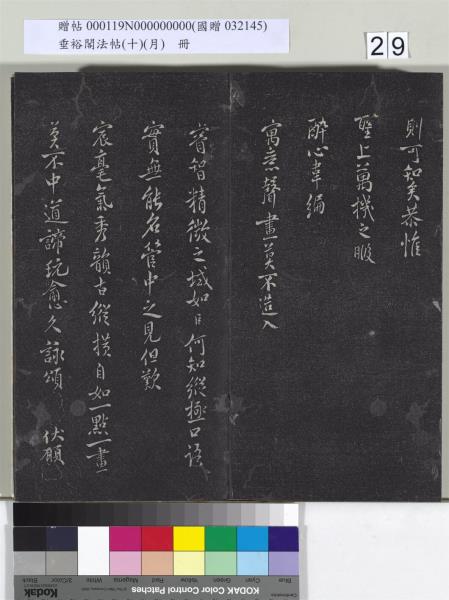 贈帖 000119N000000000(國贈 032145)
垂裕閣法帖(十)(月) 冊
29
則可知矣恭惟
聖上萬機之暇
醉心韋編
寓意聲畫莫不造入
睿智精微之域如臣何知縱極口語
實無能名管中之見但歎
宸毫氣秀韻古縱橫自如一點一畫
莫不中道諦玩愈久詠頌 伏願
Blue Cyan Green Yellow Red Magenta White 3/Color Black
KODAK Color Control Patches
Kodak